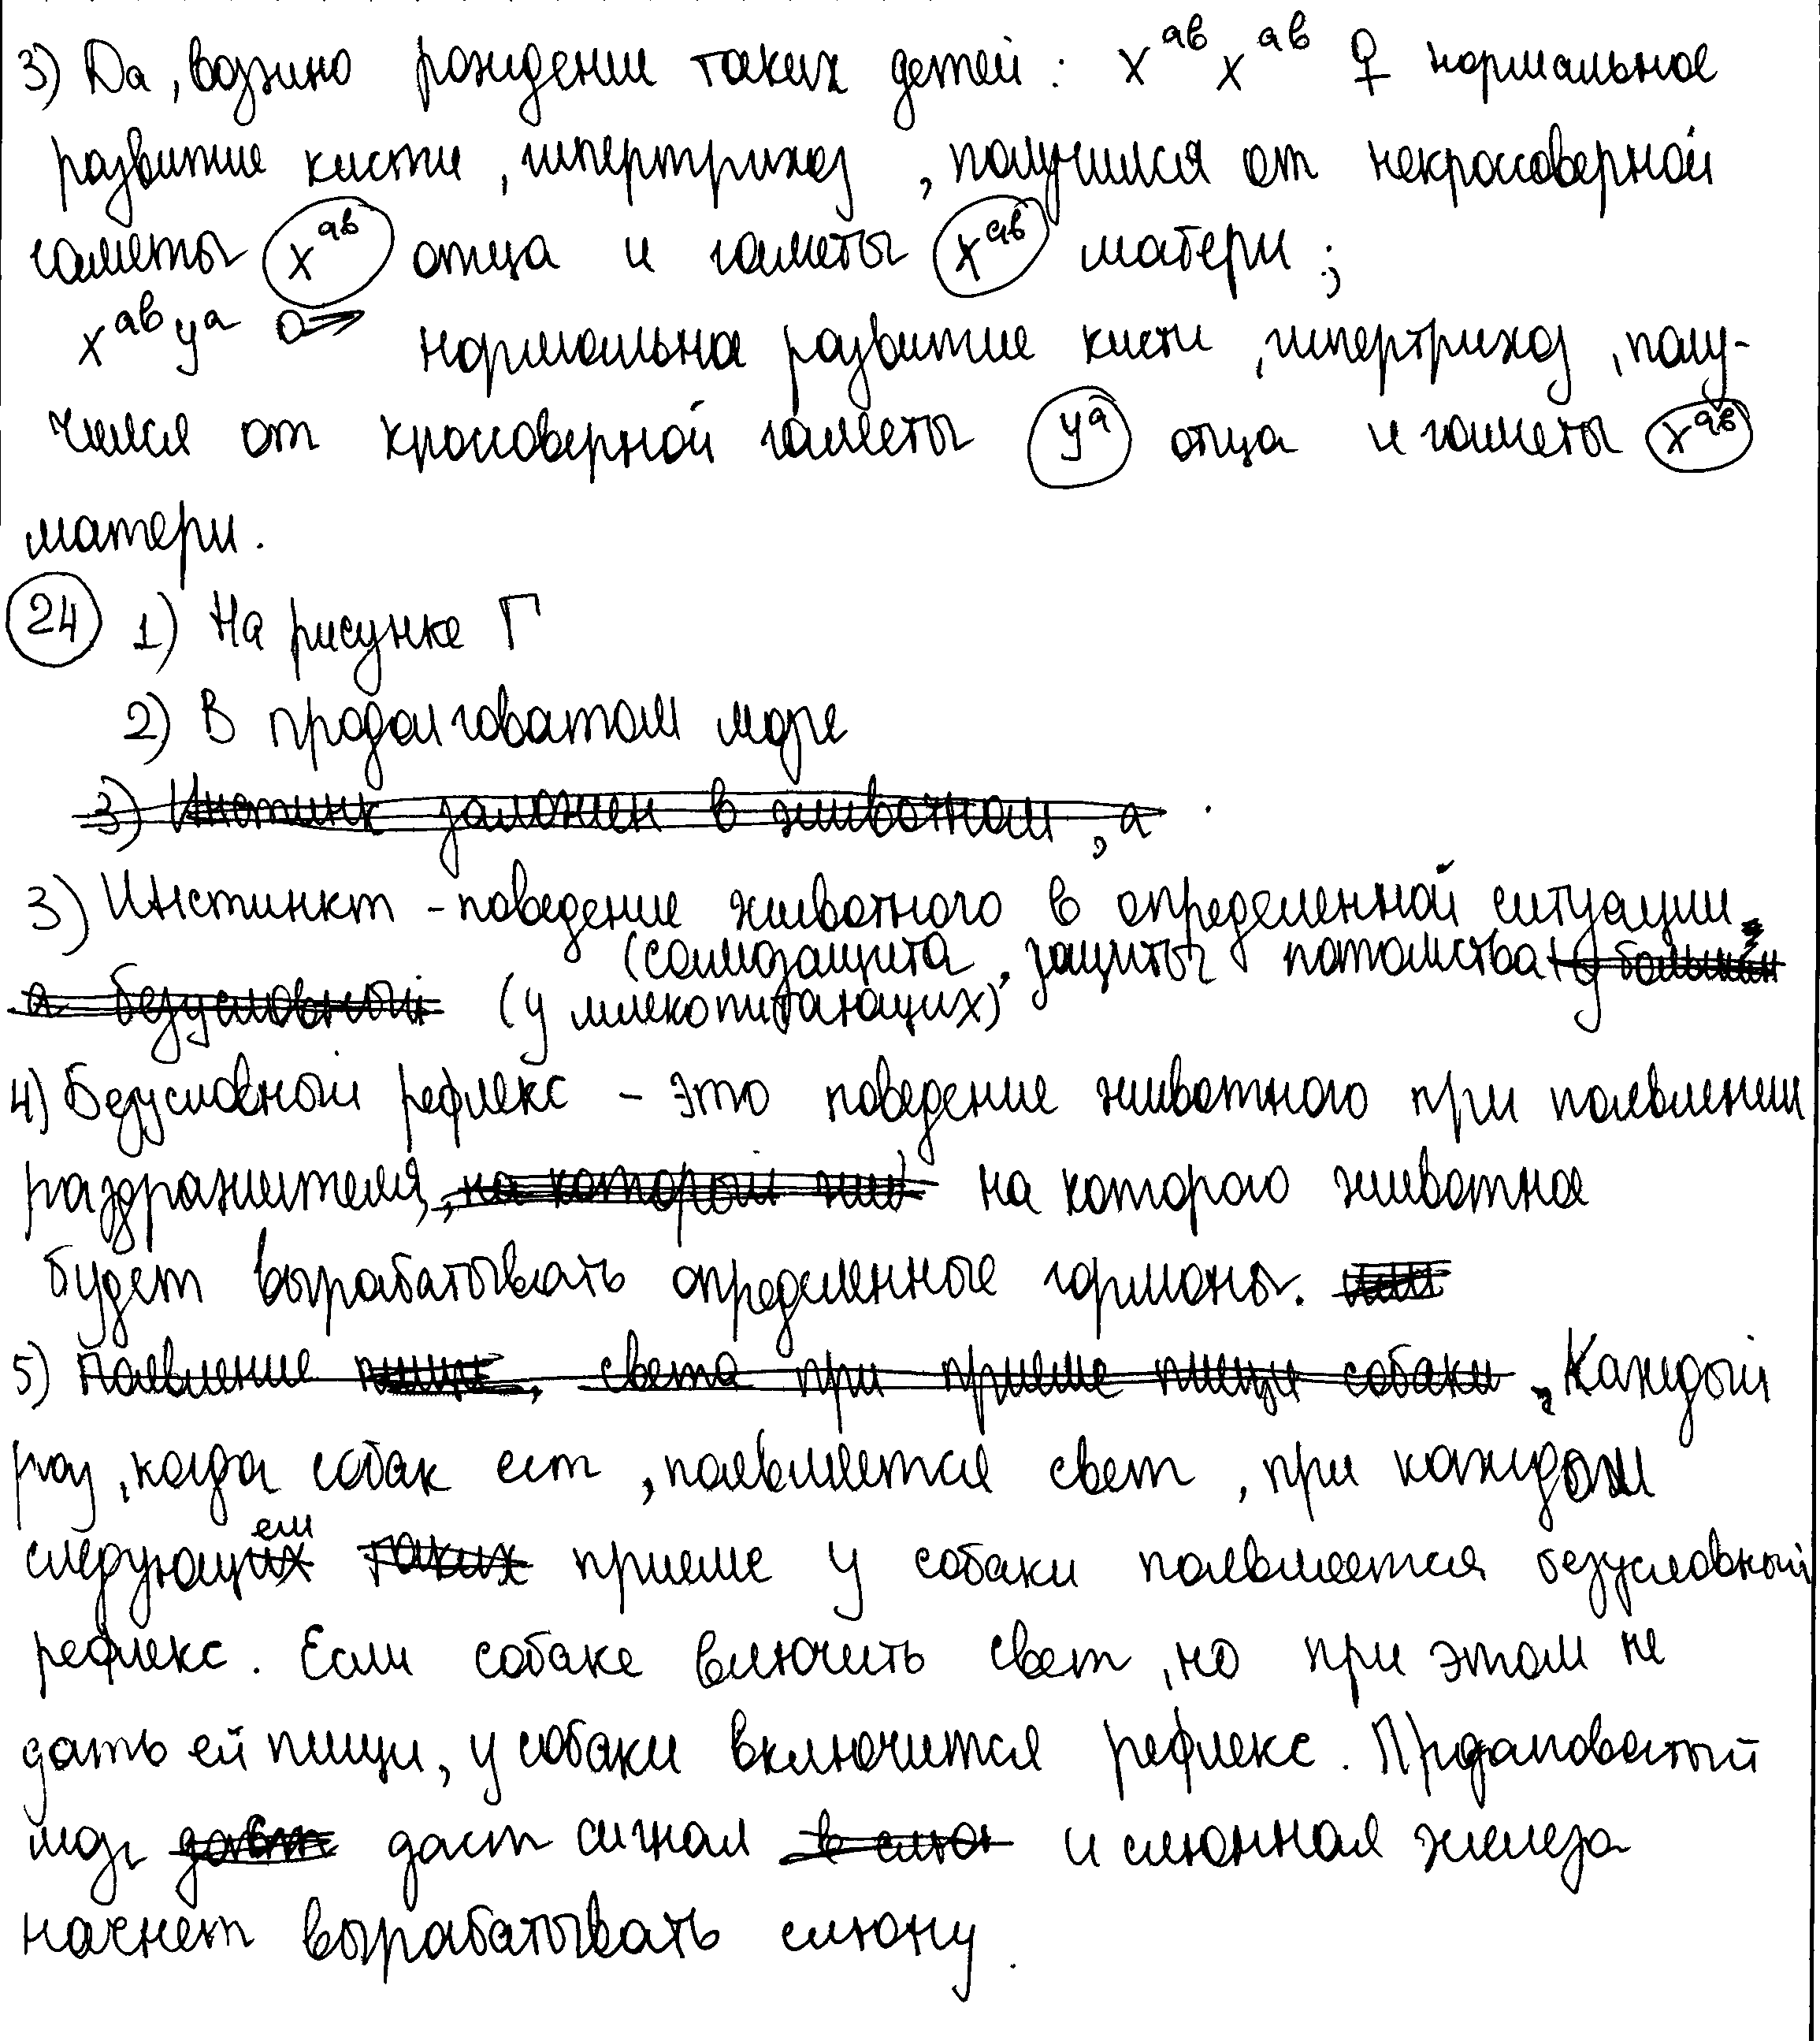 3) Да, возмно рождении таких детей: X^ав X^ав ♀ нормальное
развитие кисти, гипертрихоз, получился от некроссоверной
гаметы X^ав отца и гаметы X^ав матери;
X^ав У^а ♂ нормальное развитие кисти, гипертрихоз, полу-
чился от кроссоверной гаметы У^а отца и гаметы X^ав
матери.
24 1) На рисунке Г
2) В продолговатом мозге
3) Инстинк заложен в животном, а
3) Инстинкт - поведение животного в определенной ситуации
(самозащита, защиты потомства)
а безусловный (у млекопитающих)
4) Безусловный рефлекс - это поведение животного при появлении
раздражителя, на который жив на которого животное
будет вырабатывать определенные гормоны. или
5) Появление пищи, света при приеме пищи собаки. Каждый
раз, когда собак ест, появляется свет, при каждом
следующем таких приеме у собаки появляется безусловный
рефлекс. Если собаке включить свет, но при этом не
дать ей пищи, у собаки включится рефлекс. Продолговатый
мозг даст сигнал в слюн и слюнная железа
начнет вырабатывать слюну.